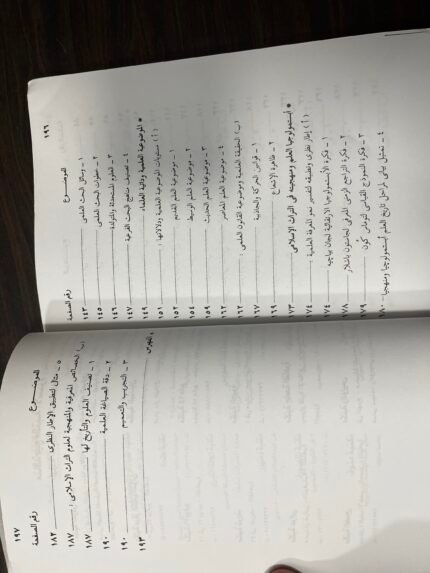 ١٩٦
الموضـــوع
رقم الصفحة
١ - وسائل البحث العلمى ١٤٣
٢ - خطوات البحث العلمى ١٤٥
٣ - العلوم المستحدثة والمتولدة ١٤٦
٤ - تصنيف مناهج البحث الفرعية ١٤٧
* الموضوعية العلمية وذاتية العلماء ١٤٩
( أ ) مستويات الموضوعية العلمية ودلالاتها : ١٥١
١ - موضوعية العلم القديم ١٥٢
٢ - موضوعية العلم الوسيط ١٥٤
٣ - موضوعية العلم الحديث ١٥٩
٤ - موضوعية العلم المعاصر ١٦٢
(ب) الحقيقة العلمية وموضوعية القانون العلمى : ١٦٢
١ - قوانين الحركة والجاذبية ١٦٧
٢ - ظاهرة الإشعاع ١٦٩
* إبستمولوجيا العلم ومنهجيته فى التراث الإسلامى ١٧٣
( أ ) إطار نظرى وتطبيقه لتفسير نمو المعرفة العلمية : ١٧٤
١ - فكرة الأبستمولوجيا الارتقائية لجان بياجيه ١٧٤
٢ - فكرة التراجع الزمنى المعرفى لجاستون باشلار ١٧٨
٣ - فكرة النموذج القياسى لتوماس كون ١٧٩
٤ - تمثيل بيانى لمراحل تاريخ العلم إبستمولوجيا ومنهجيا ١٨٠
١٩٧
الموضـــوع
رقم الصفحة
٥ - مثال لتطبيق الإطار النظرى ١٨٢
(ب) الخصائص المعرفية والمنهجية لعلوم التراث الإسلامى : ١٨٧
١ - تصنيف العلوم والتأريخ لها ١٨٧
٢ - دقة الصياغة العلمية ١٩٠
٣ - التجريب والتعميم ١٩٠
* الفهرس ١٩٣